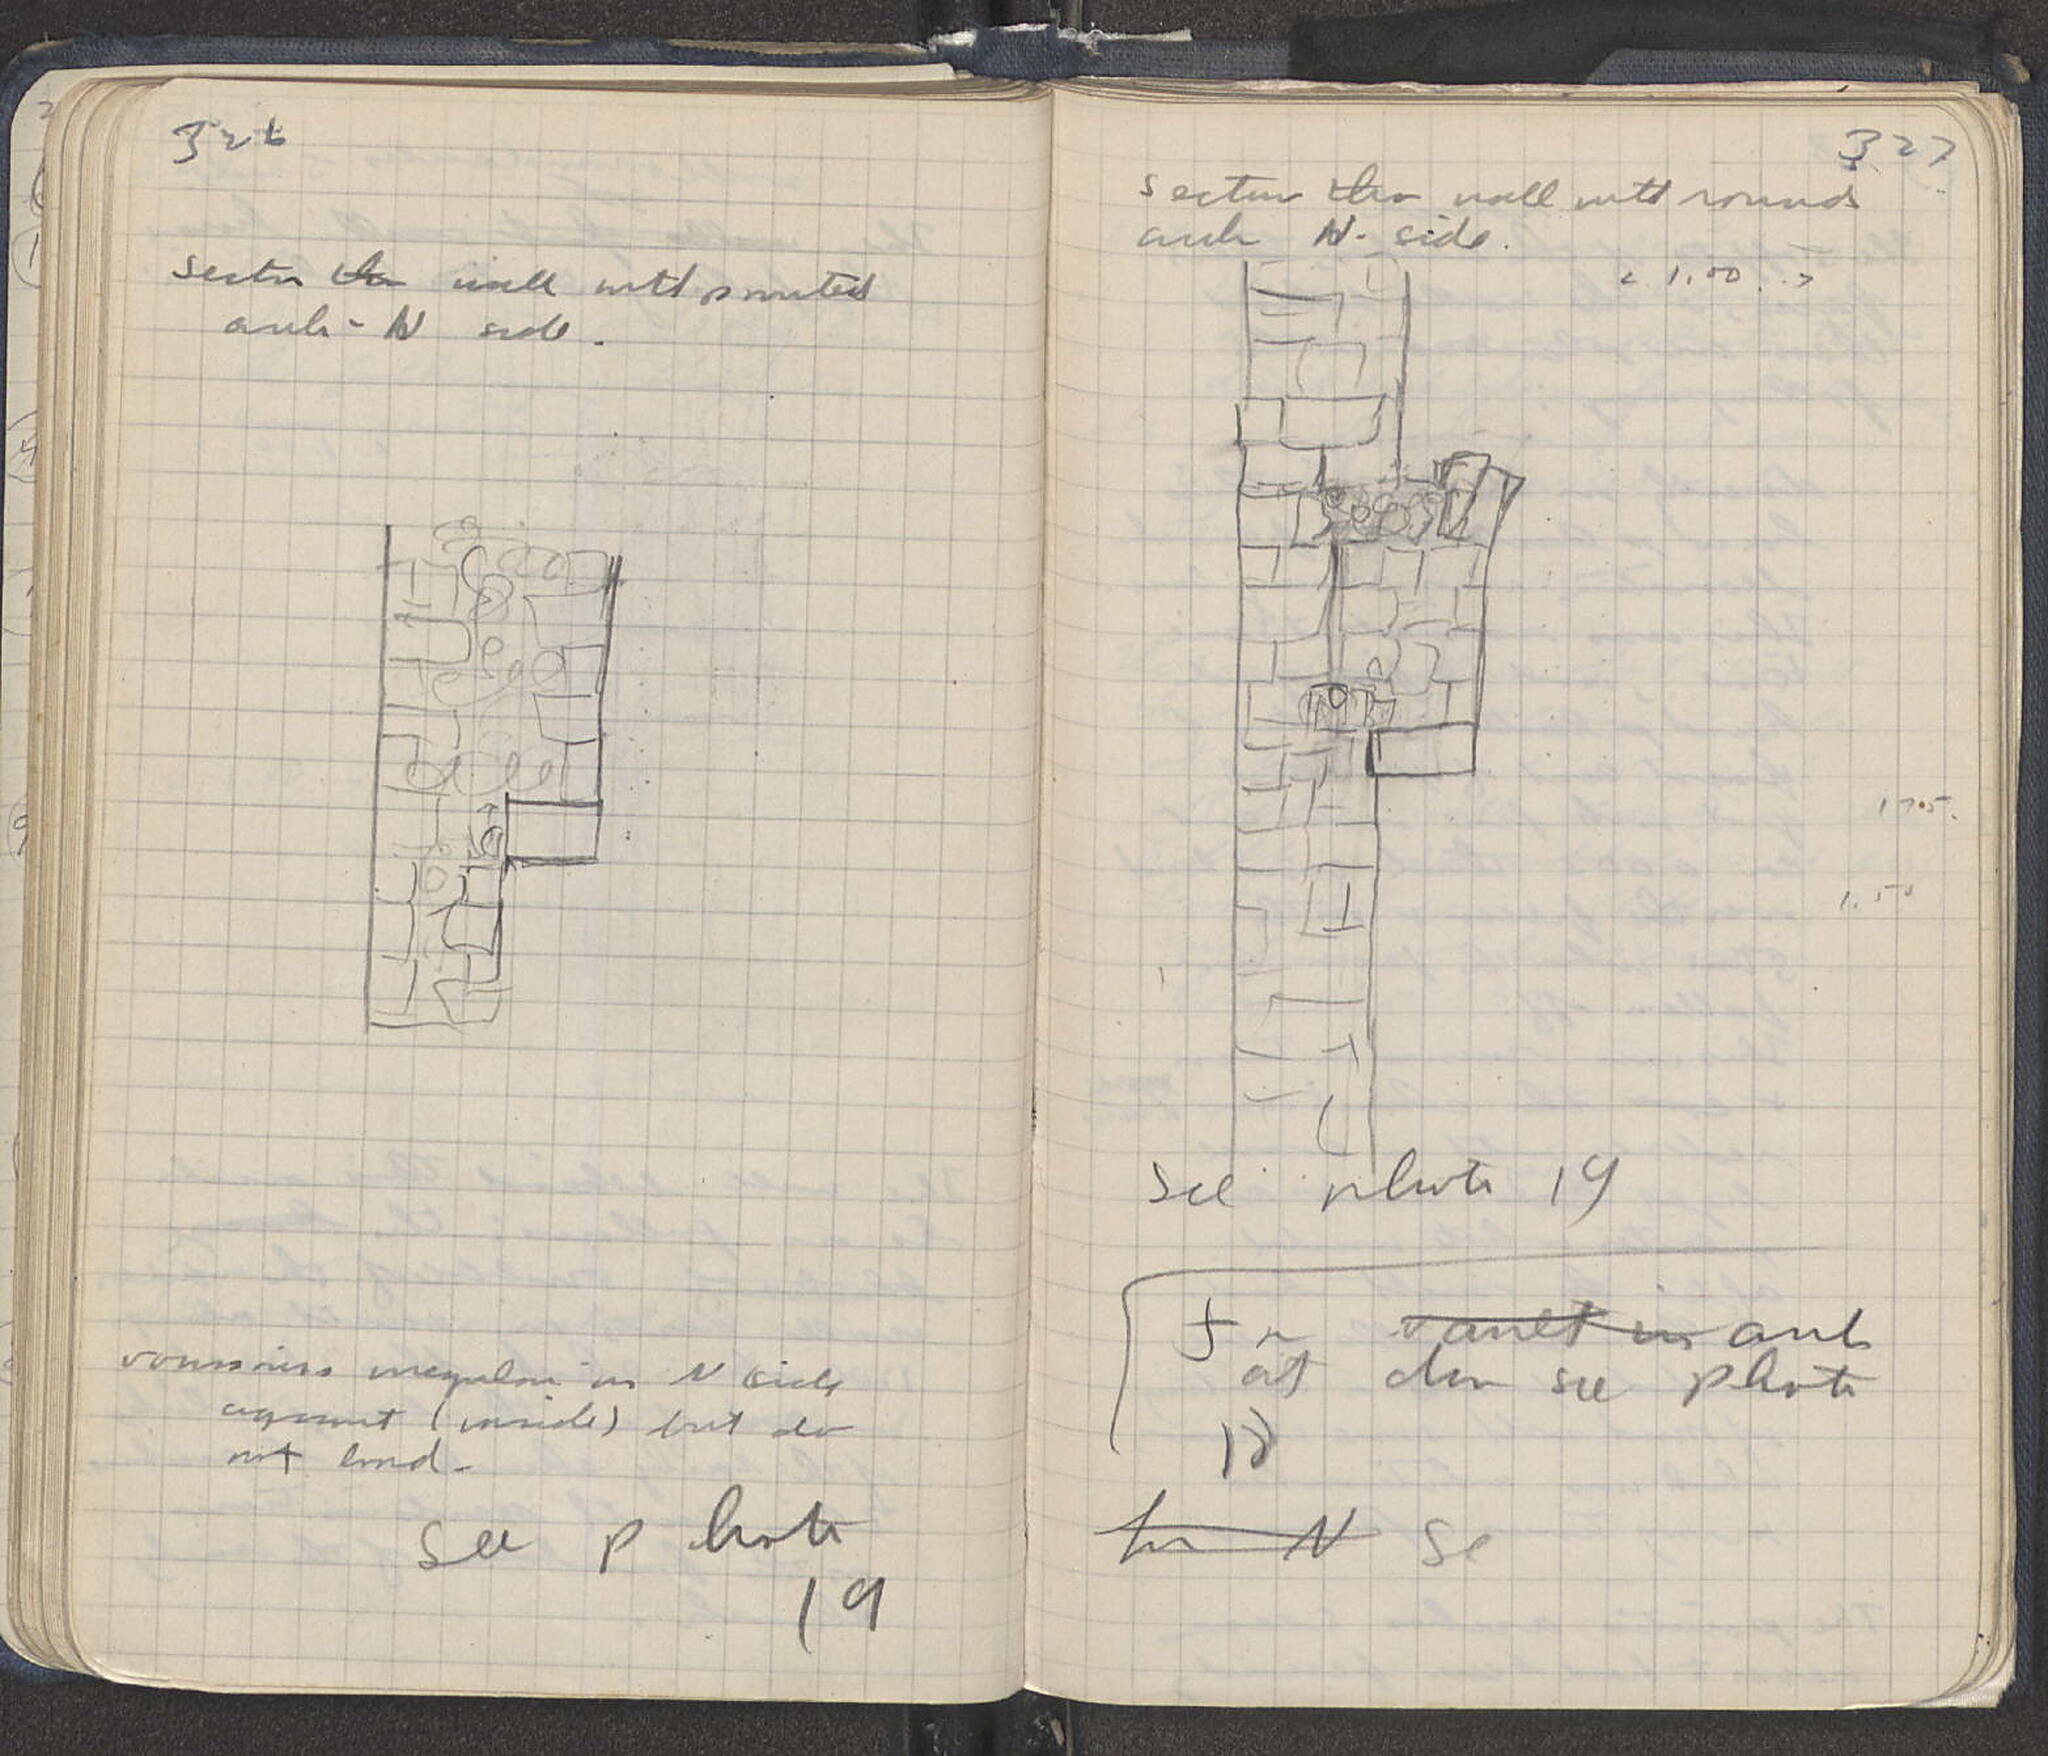 326
Section thro wall with pointed
arch - N side.
voussoirs irregular in N side
against (inside) but do
not bond.
See photo
19
327
Section thro wall with round
arch N. side.
< 1.00 >
1.50
See photo 19
For vault in arch
at door see photo
18
for N Se